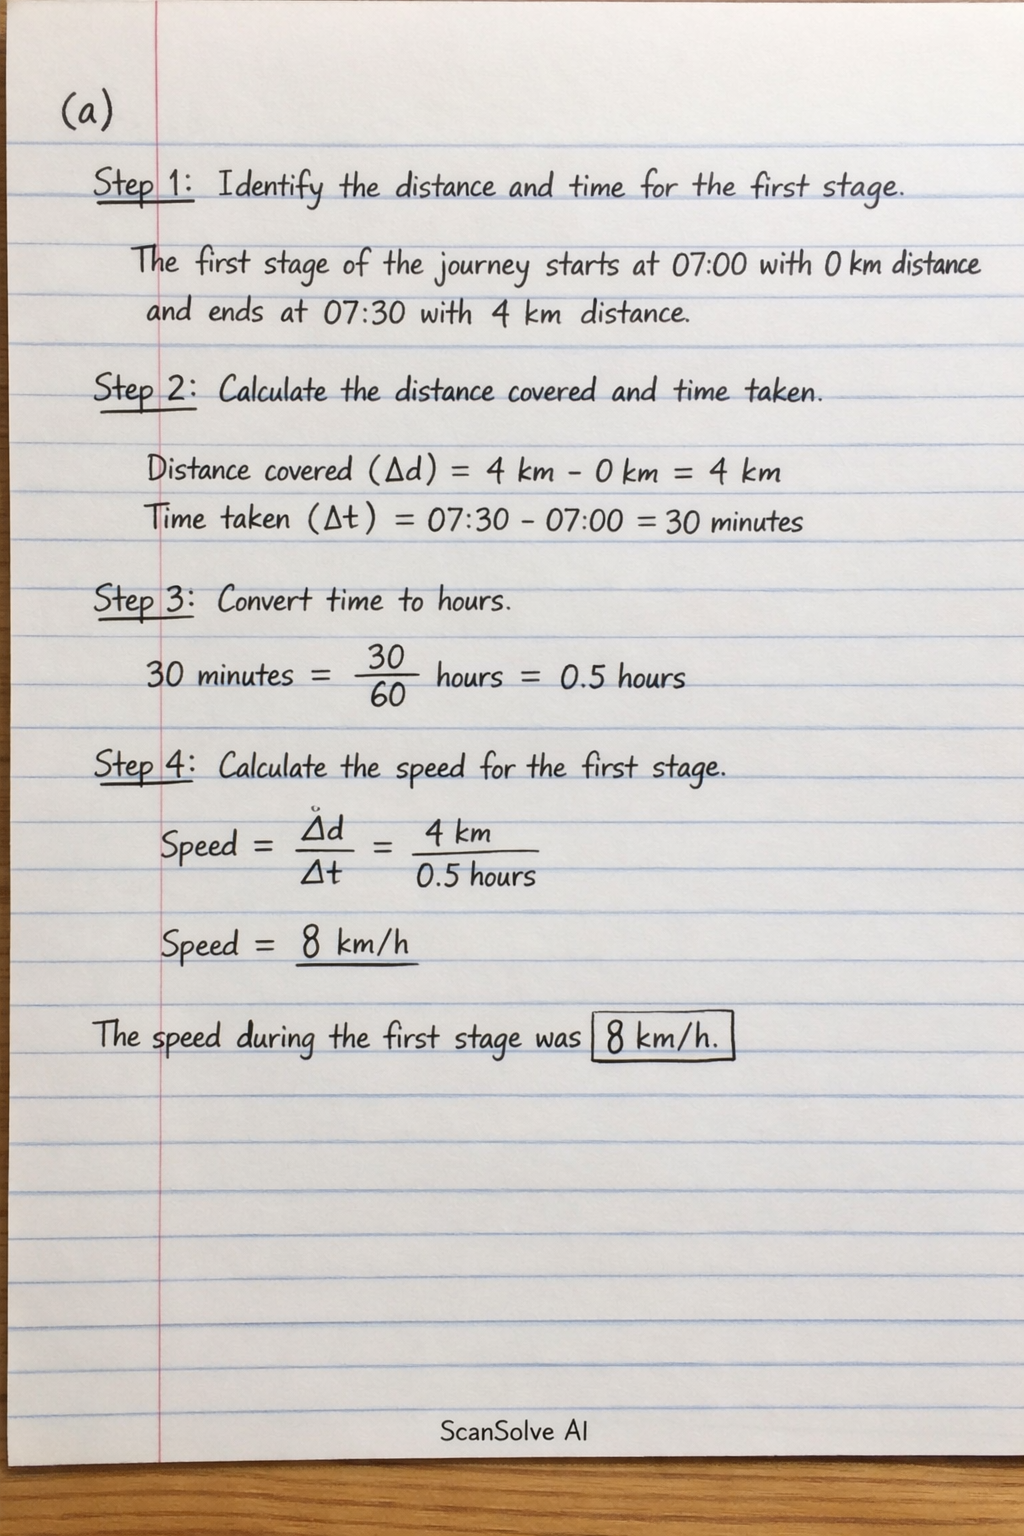 (a)
Step 1: Identify the distance and time for the first stage.
The first stage of the journey starts at 07:00 with 0 km distance
and ends at 07:30 with 4 km distance.
Step 2: Calculate the distance covered and time taken.
Distance covered (Δd) = 4 km - 0 km = 4 km
Time taken (Δt) = 07:30 - 07:00 = 30 minutes
Step 3: Convert time to hours.
30 minutes = 30/60 hours = 0.5 hours
Step 4: Calculate the speed for the first stage.
Speed = Δd/Δt = 4 km/0.5 hours
Speed = 8 km/h
The speed during the first stage was 8 km/h.
ScanSolve AI